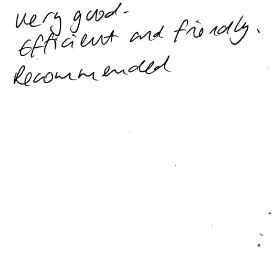 very good.
Efficient and friendly.
Recommended